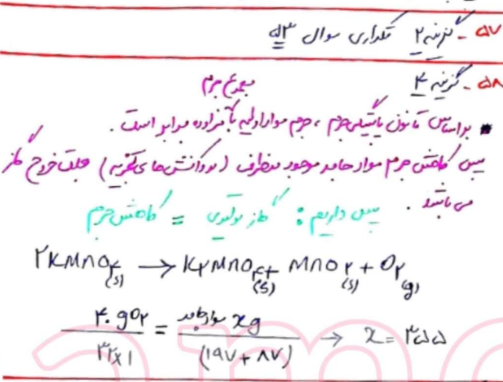 ۵۷ - گزینه ۲ تکراری سوال ۵۳
۵۸ - گزینه ۴
مجموع جرم
براساس قانون پایستگی جرم ، جرم مواد اولیه با فراورده برابر است .
پس کاهش جرم مواد جامد موجود در ظرف (در واکنش های تجزیه) بعلت خروج گاز
می باشد .
پس داریم : گاز تولیدی = کاهش جرم
۲KMnO۴(s) → K۲MnO۴(s) + MnO۲(s) + O۲(g)
۴۰gO۲ / ۳۲×۱ = xg مواد جامد / (۱۹۷ + ۸۷) → x = ۳۵۵